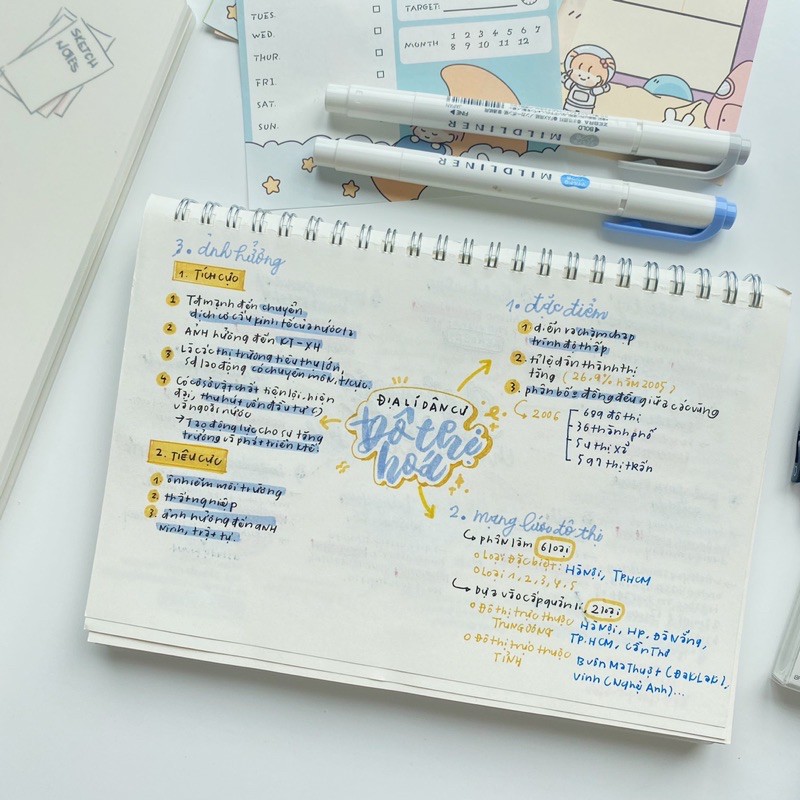 SKETCH
NOTES
TUES.
WED.
THUR.
FRI.
SAT.
SUN.
TARGET:
MONTH 1 2 3 4 5 6 7
8 9 10 11 12
MILDLINER
BOLD
FINE
MILDLINER
3. ảnh hưởng
1. TÍCH CỰC
1 Tđ mạnh đến chuyển
dịch cơ cấu kinh tế của nước ta
2 ẢNH hưởng đến KT-XH
3 Là các thị trường tiêu thụ lớn,
sd lao động có chuyên môn, t/cực
4 Có cơ sở vật chất tiện lợi, hiện
đại, thu hút vốn đầu tư
về ngoài nước
→ Tạo động lực cho sự tăng
trưởng và phát triển ktế.
2. TIÊU CỰC
1 ô nhiễm môi trường
2. thất nghiệp
3. ảnh hưởng đến ANH
ninh, trật tự..
ĐỊA LÍ DÂN CƯ
Đô thị
hoá
1. đặc điểm
1 diễn ra chậm chạp
trình độ thấp
2. tỉ lệ dân thành thị
tăng (26,9% năm 2005)
3. phân bố ≠ đồng đều giữa các vùng
2006
689 đô thị
36 thành phố
54 thị xã
597 thị trấn
2. mạng lưới đô thị
phân làm 6 loại
Loại Đặc biệt: Hà Nội, TP.HCM
Loại 1, 2, 3, 4, 5
Dựa vào cấp quản lí 2 loại
Đô thị trực thuộc Hà Nội, HP, Đà Nẵng,
TRUNG ƯƠNG TP.HCM, Cần Thơ
Đô thị trực thuộc Buôn Ma Thuột (Đak Lak),
TỈNH Vinh (Nghệ An)...